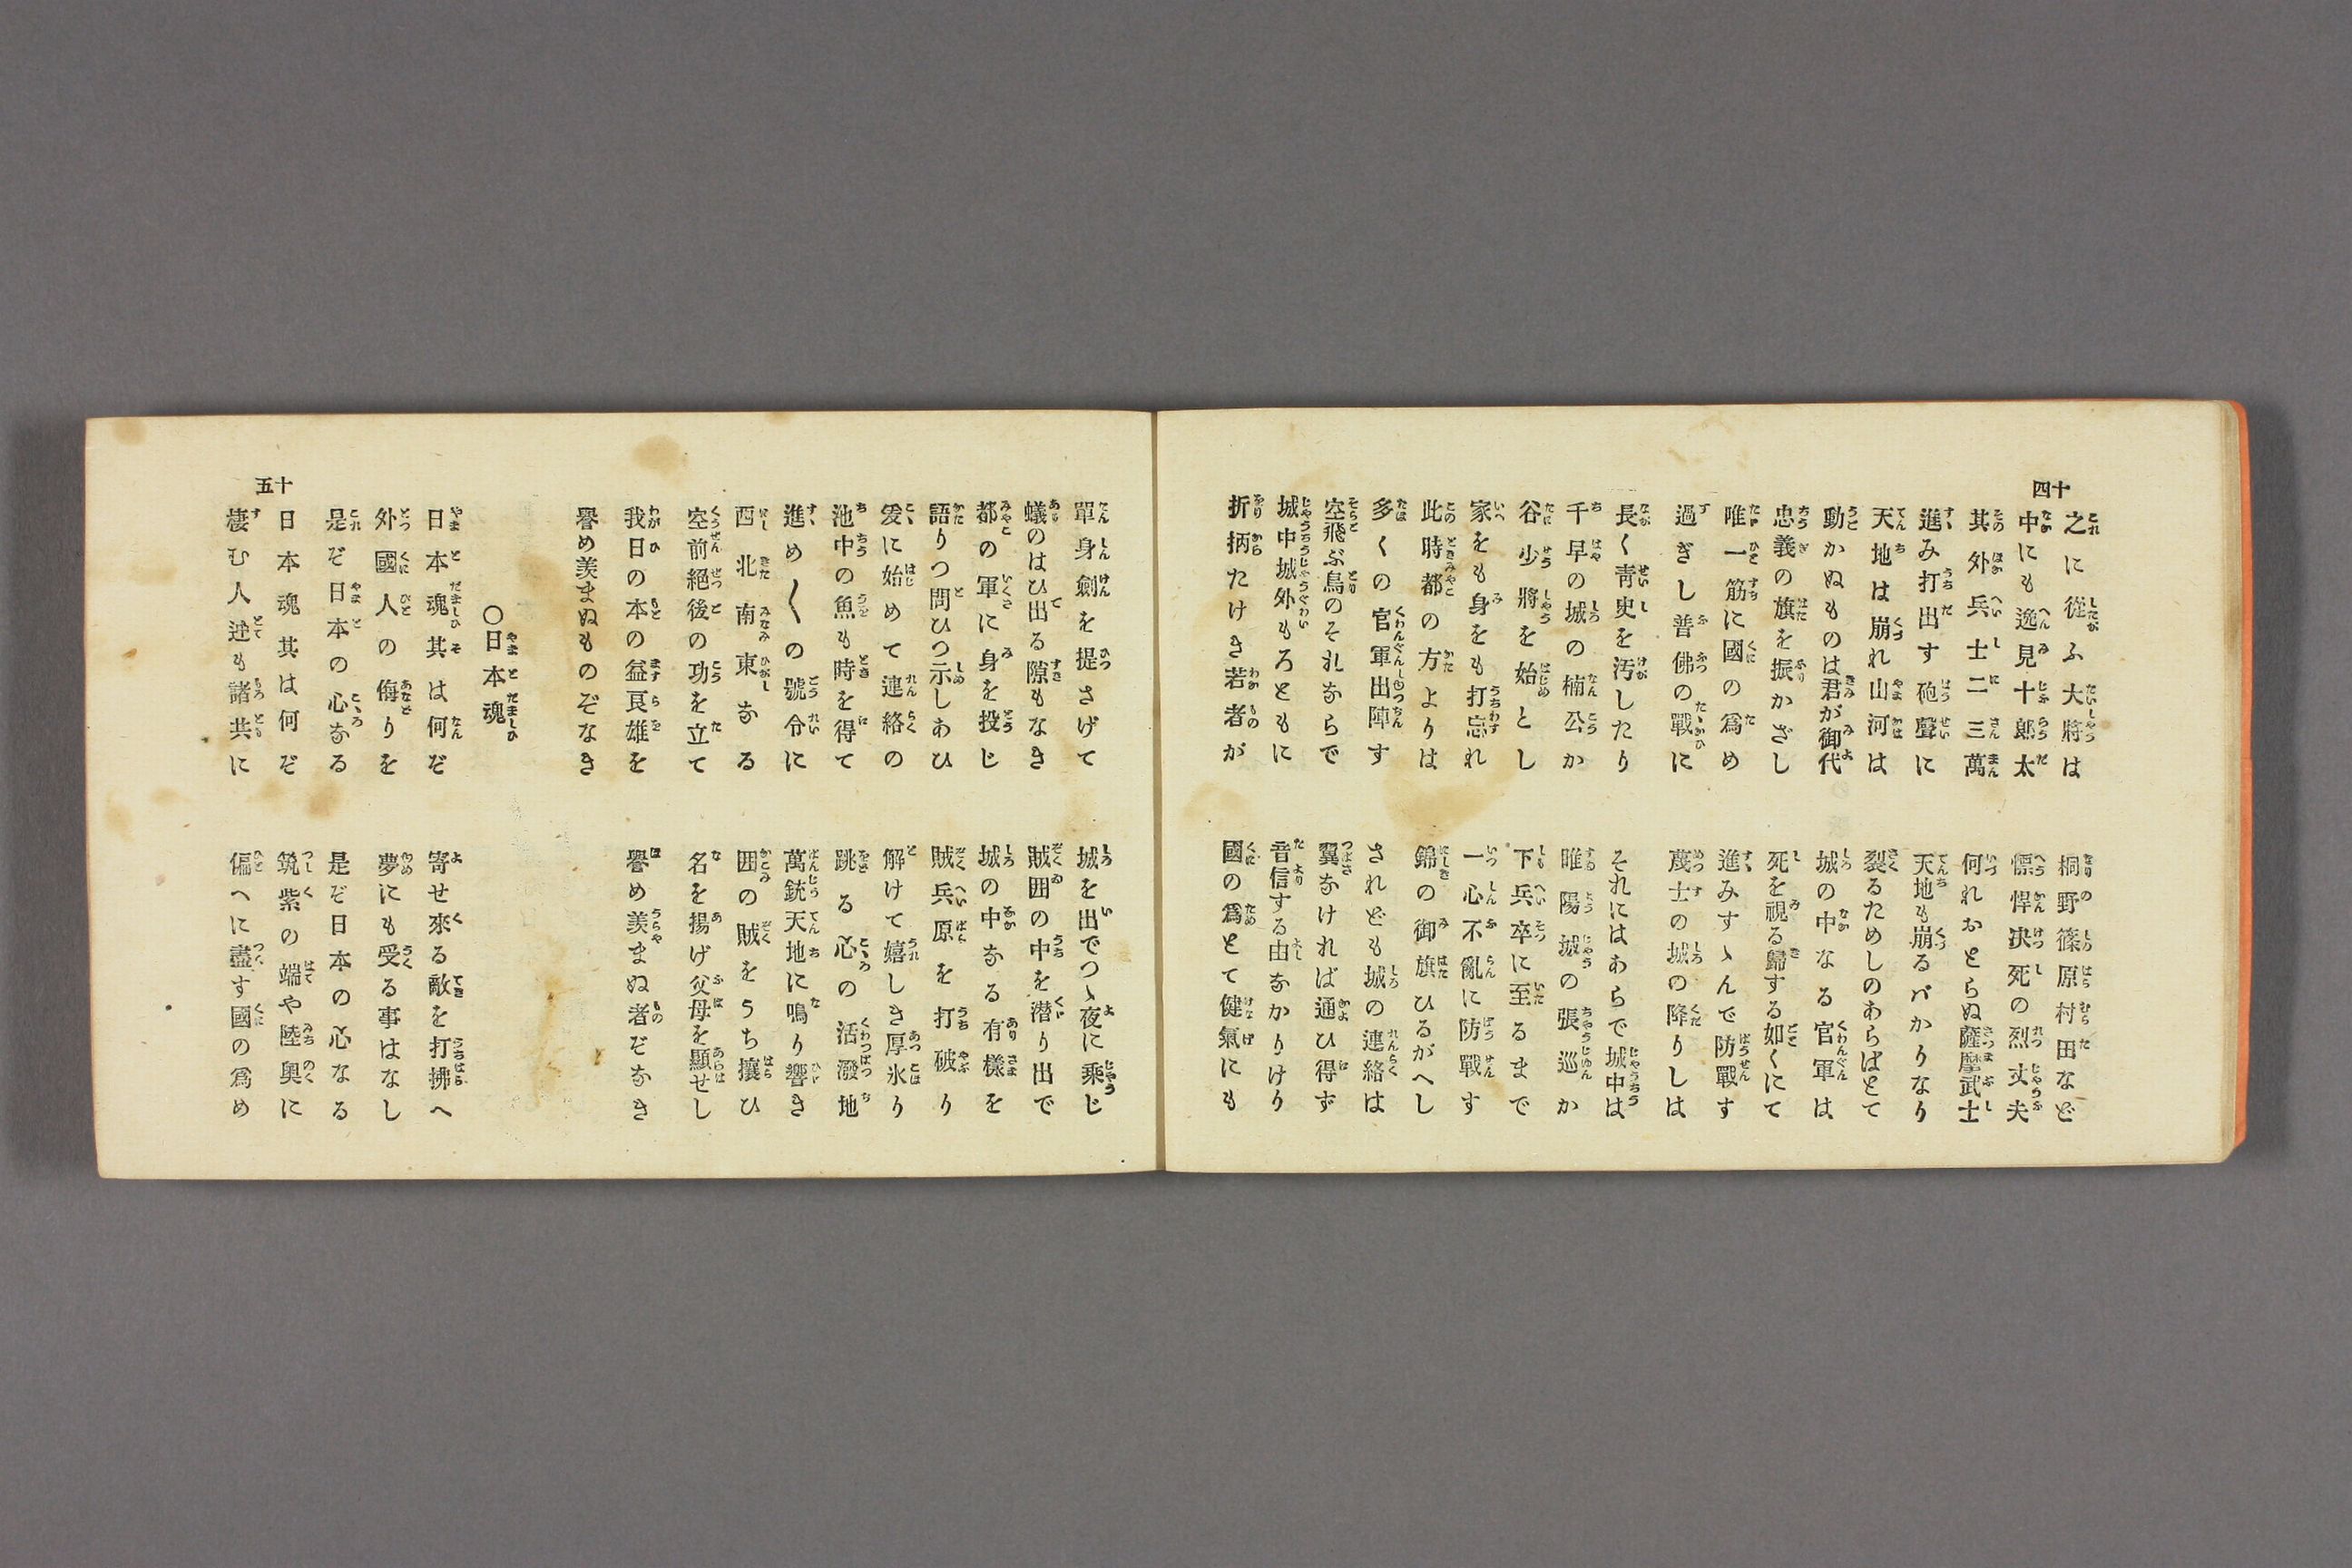 十四
之に從ふ大將は
桐野篠原村田など
中にも逸見十郎太
慓悍决死の烈丈夫
其外兵士二三萬
何れおとらぬ薩摩武士
進み打出す砲聲に
天地も崩るバかりなり
天地は崩れ山河は
裂るためしのあらばとて
動かぬものは君が御代
城の中なる官軍は
忠義の旗を振かざし
死を視る歸する如くにて
唯一筋に國の爲め
進みすゝんで防戰す
過ぎし普佛の戰に
蔑士の城の降りしは
長く靑史を汚したり
それにはあらで城中は
千早の城の楠公か
睢陽城の張巡か
谷少將を始とし
下兵卒に至るまで
家をも身をも打忘れ
一心不亂に防戰す
此時都の方よりは
錦の御旗ひるがへし
多くの官軍出陣す
されども城の連絡は
空飛ぶ鳥のそれならで
翼なければ通ひ得ず
城中城外もろともに
音信する由なかりけり
折柄たけき若者が
國の爲とて健氣にも
單身劍を提さげて
城を出でつゝ夜に乘じ
蟻のはひ出る隙もなき
賊囲の中を潜り出で
都の軍に身を投じ
城の中なる有樣を
語りつ問ひつ示しあひ
賊兵原を打破り
爰に始めて連絡の
解けて嬉しき厚氷り
池中の魚も時を得て
跳る心の活潑地
進め〱の號令に
萬銃天地に鳴り響き
西北南東なる
囲の賊をうち攘ひ
空前絕後の功を立て
名を揚げ父母を顯せし
我日の本の益良雄を
譽め羨まぬ者ぞなき
譽め羨まぬものぞなき
〇日本魂
日本魂其は何ぞ
寄せ來る敵を打拂へ
外國人の侮りを
夢にも受る事はなし
是ぞ日本の心なる
是ぞ日本の心なる
日本魂其は何ぞ
筑紫の端や陸奧に
棲む人迚も諸共に
偏へに盡す國の爲め
十五